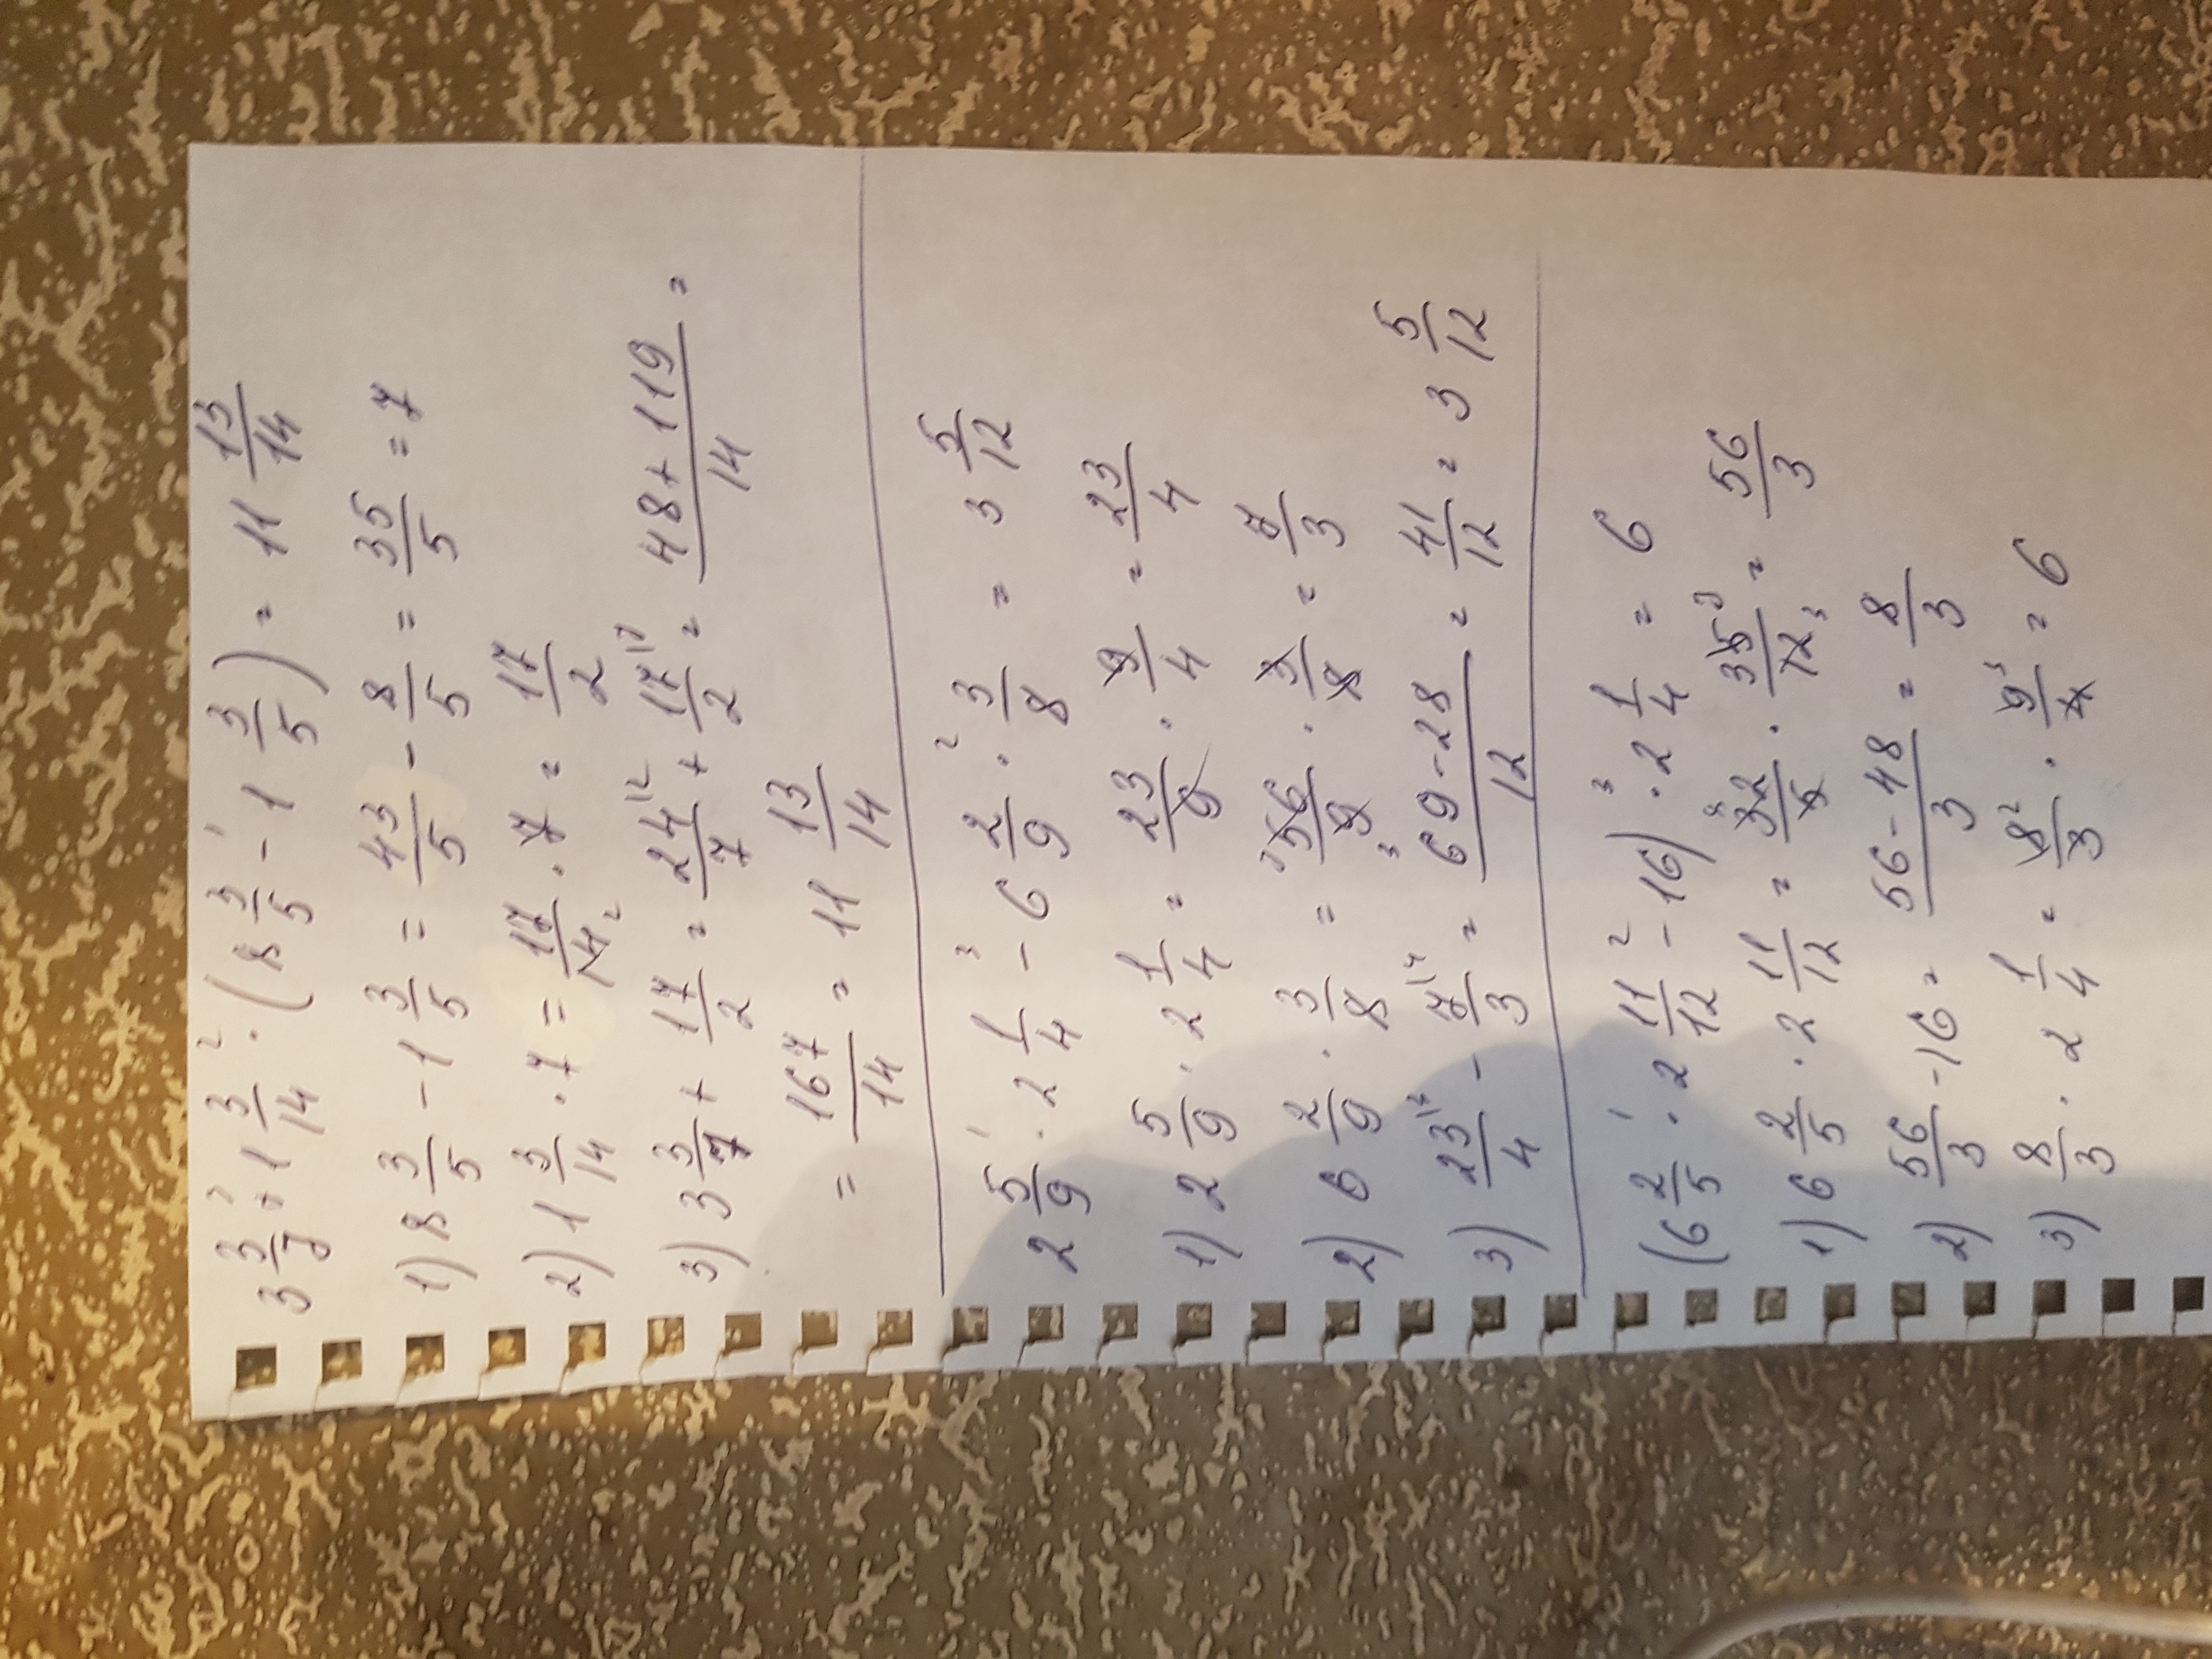 3 3/7 + 1 3/14 · (8 3/5 - 1 3/5) = 11 13/14
1) 8 3/5 - 1 3/5 = 43/5 - 8/5 = 35/5 = 7
2) 1 3/14 · 7 = 17/14 · 7 = 17/2
3) 3 3/7 + 17/2 = 24/7 + 17/2 = (48+119)/14 =
= 167/14 = 11 13/14
2 5/9 · 2 1/4 - 6 2/9 · 3/8 = 3 5/12
1) 2 5/9 · 2 1/4 = 23/9 · 9/4 = 23/4
2) 6 2/9 · 3/8 = 56/9 · 3/8 = 7/3
3) 23/4 - 7/3 = (69-28)/12 = 41/12 = 3 5/12
(6 2/5 · 2 11/12 - 16) · 2 1/4 = 6
1) 6 2/5 · 2 11/12 = 32/5 · 35/12 = 56/3
2) 56/3 - 16 = (56-48)/3 = 8/3
3) 8/3 · 2 1/4 = 8/3 · 9/4 = 6